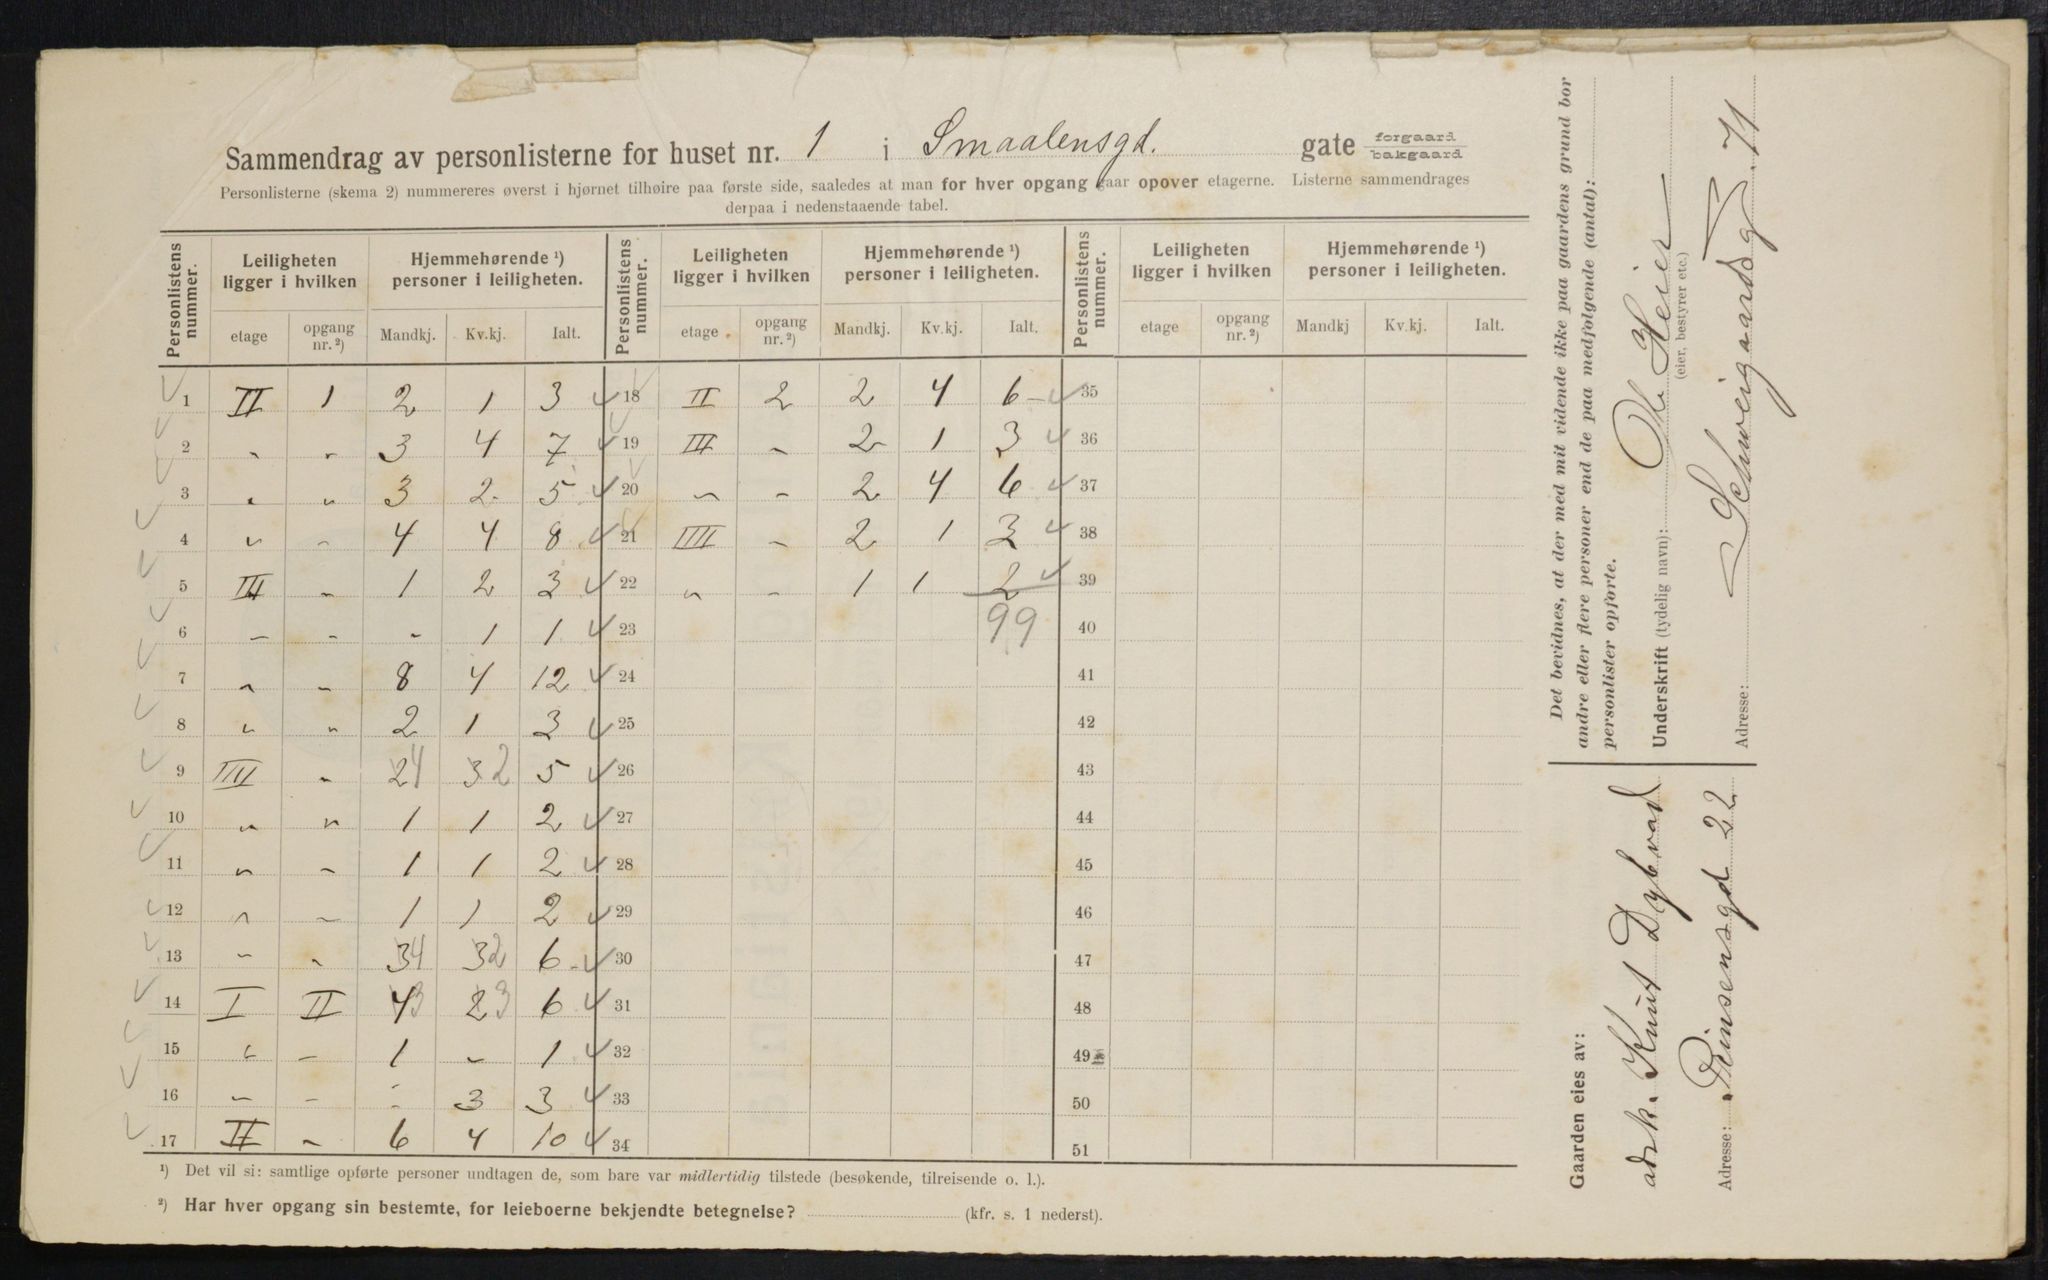 Sammendrag av personlisterne for huset nr. 1 i Smaalensgd. gate forgaard bakgaard
Personlisterne (skema 2) nummereres øverst i hjørnet tilhøire paa første side, saaledes at man for hver opgang gaar opover etagerne. Listerne sammendrages
derpaa i nedenstaaende tabel.
Personlistens nummer. Leiligheten ligger i hvilken Hjemmehørende ¹) personer i leiligheten. Personlistens nummer. Leiligheten ligger i hvilken Hjemmehørende ¹) personer i leiligheten. Personlistens nummer. Leiligheten ligger i hvilken Hjemmehørende ¹) personer i leiligheten.
etage opgang nr. ²) Mandkj. Kv.kj. Ialt. etage opgang nr. ²) Mandkj. Kv.kj. Ialt. etage opgang nr. ²) Mandkj Kv.kj. Ialt.
1 II 1 2 1 3 18 II 2 2 4 6 35
2 " " 3 4 7 19 III " 2 1 3 36
3 " " 3 2 5 20 " " 2 4 6 37
4 " " 4 4 8 21 IIII " 2 1 3 38
5 III " 1 2 3 22 " " 1 1 2 39
6 " " - 1 1 23 99 40
7 " " 8 4 12 24 41
8 " " 2 1 3 25 42
9 IIII " 2 4 3 2 5 26 43
10 " " 1 1 2 27 44
11 " " 1 1 2 28 45
12 " " 1 1 2 29 46
13 " " 3 4 3 2 6 30 47
14 I II 4 3 2 3 6 31 48
15 " " 1 - 1 32 49
16 " " - 3 3 33 50
17 II " 6 4 10 34 51
¹) Det vil si: samtlige opførte personer undtagen de, som bare var midlertidig tilstede (besøkende, tilreisende o. l.).
²) Har hver opgang sin bestemte, for leieboerne bekjendte betegnelse? (kfr. s. 1 nederst).
Det bevidnes, at der med mit vidende ikke paa gaardens grund bor
andre eller flere personer end de paa medfølgende (antal):
personlister opførte.
Underskrift (tydelig navn): Heier
(eier, bestyrer etc.)
Adresse: Schweigaardsg. 71
Gaarden eies av:
Knut Dybvad
Adresse: Prinsensgd 22